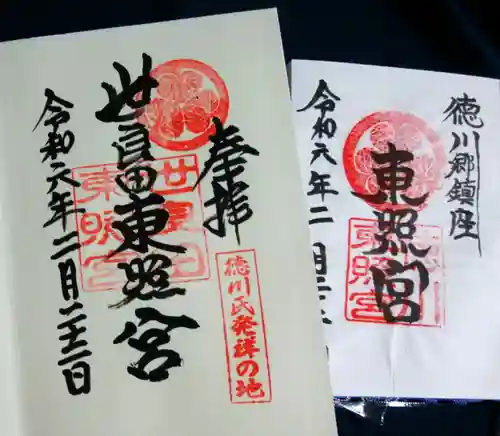 奉拝
世良田東照宮
令和六年二月二十二日
世良田
東照宮
徳川氏発祥の地
徳川郷鎮座
東照宮
令和六年二月二十二
東照宮